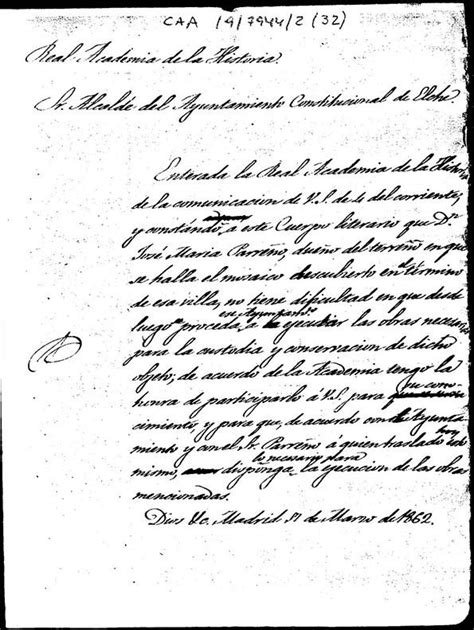 CAA /9/7944/2 (32)
Real Academia de la Historia.
Sr. Alcalde del Ayuntamiento Constitucional de Elche.
Enterada la Real Academia de la Historia
de la comunicacion de V.S. de 4 del corriente;
y constando, a este Cuerpo literario que Dn
José Maria Parreño, dueño del terreno en que
se halla el mosaico descubierto en el término
de esa villa, no tiene dificultad en que desde
ese Ayuntamto
luego proceda, a ejecutar las obras necesarias
para la custodia y conservacion de dicho
objeto; de acuerdo de la Academia tengo la
honra de participarlo á V.S. para su cono-
cimiento, y para que, de acuerdo con el Ayunta-
miento y con el Sr. Parreño á quien traslado hoy lo
lo necesario para
mismo, disponga la ejecucion de las obras
mencionadas.
Dios &c. Madrid de Marzo de 1862.